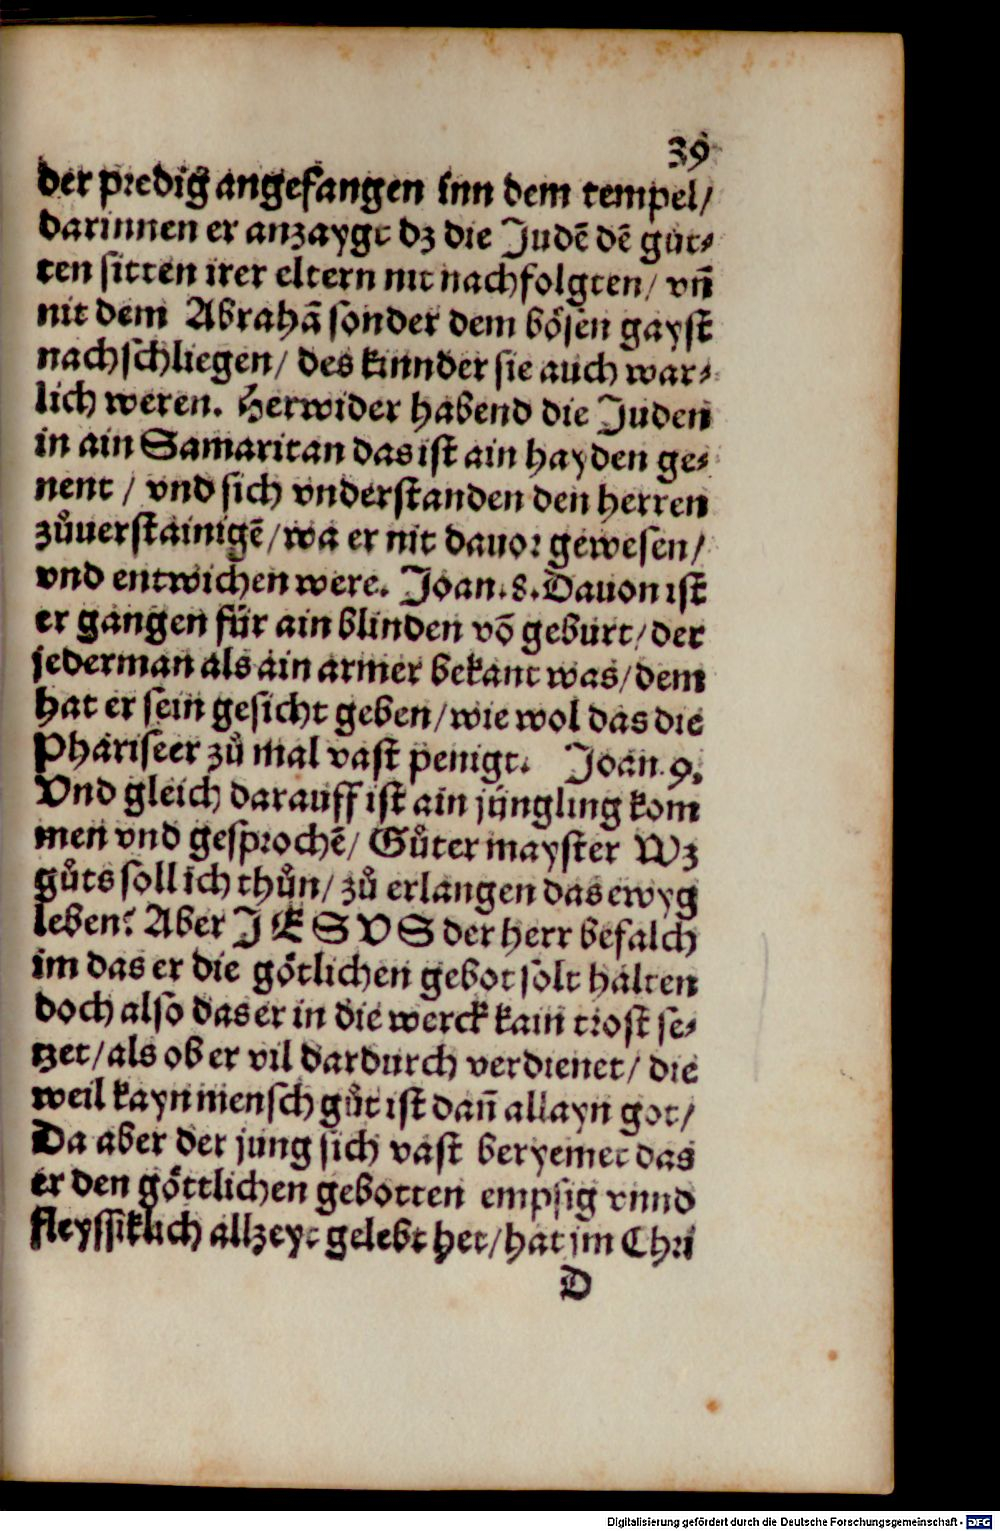 39
der predig angefangen inn dem tempel/
darinnen er anzaygt dz die Judē dē gůt⸗
ten sitten irer eltern nit nachfolgten/ vñ
nit dem Abrahā sonder dem bösen gayst
nachschliegen/ des kinnder sie auch war⸗
lich weren. Herwider habend die Juden
in ain Samaritan das ist ain hayden ge⸗
nent / vnd sich vnderstanden den herren
zůuerstainigē/wa er nit dauor gewesen/
vnd entwichen were. Joan.8.Dauon ist
er gangen für ain blinden vō geburt/der
jederman als ain armer bekant was/dem
hat er sein gesicht geben/wie wol das die
Phariseer zů mal vast penigt. Joan.9.
Vnd gleich darauff ist ain jüngling kom
men vnd gesprochē/ Gůter mayster Wz
gůts soll ich thůn/ zů erlangen das ewyg
leben? Aber JESVS der herr befalch
im das er die götlichen gebot solt halten
doch also das er in die werck kain trost se⸗
tzet/als ob er vil dardurch verdienet/ die
weil kayn mensch gůt ist dañ allayn got/
Da aber der jung sich vast beryemet das
er den göttlichen gebotten empsig vnnd
fleyssiklich allzeyt gelebt het/hat jm Chri
D
Digitalisierung gefördert durch die Deutsche Forschungsgemeinschaft - DFG